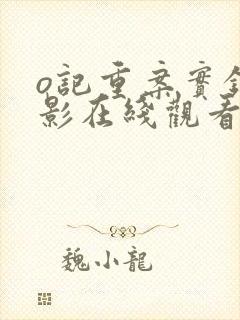 o記重案實錄
影在綫觀看
魏小龍